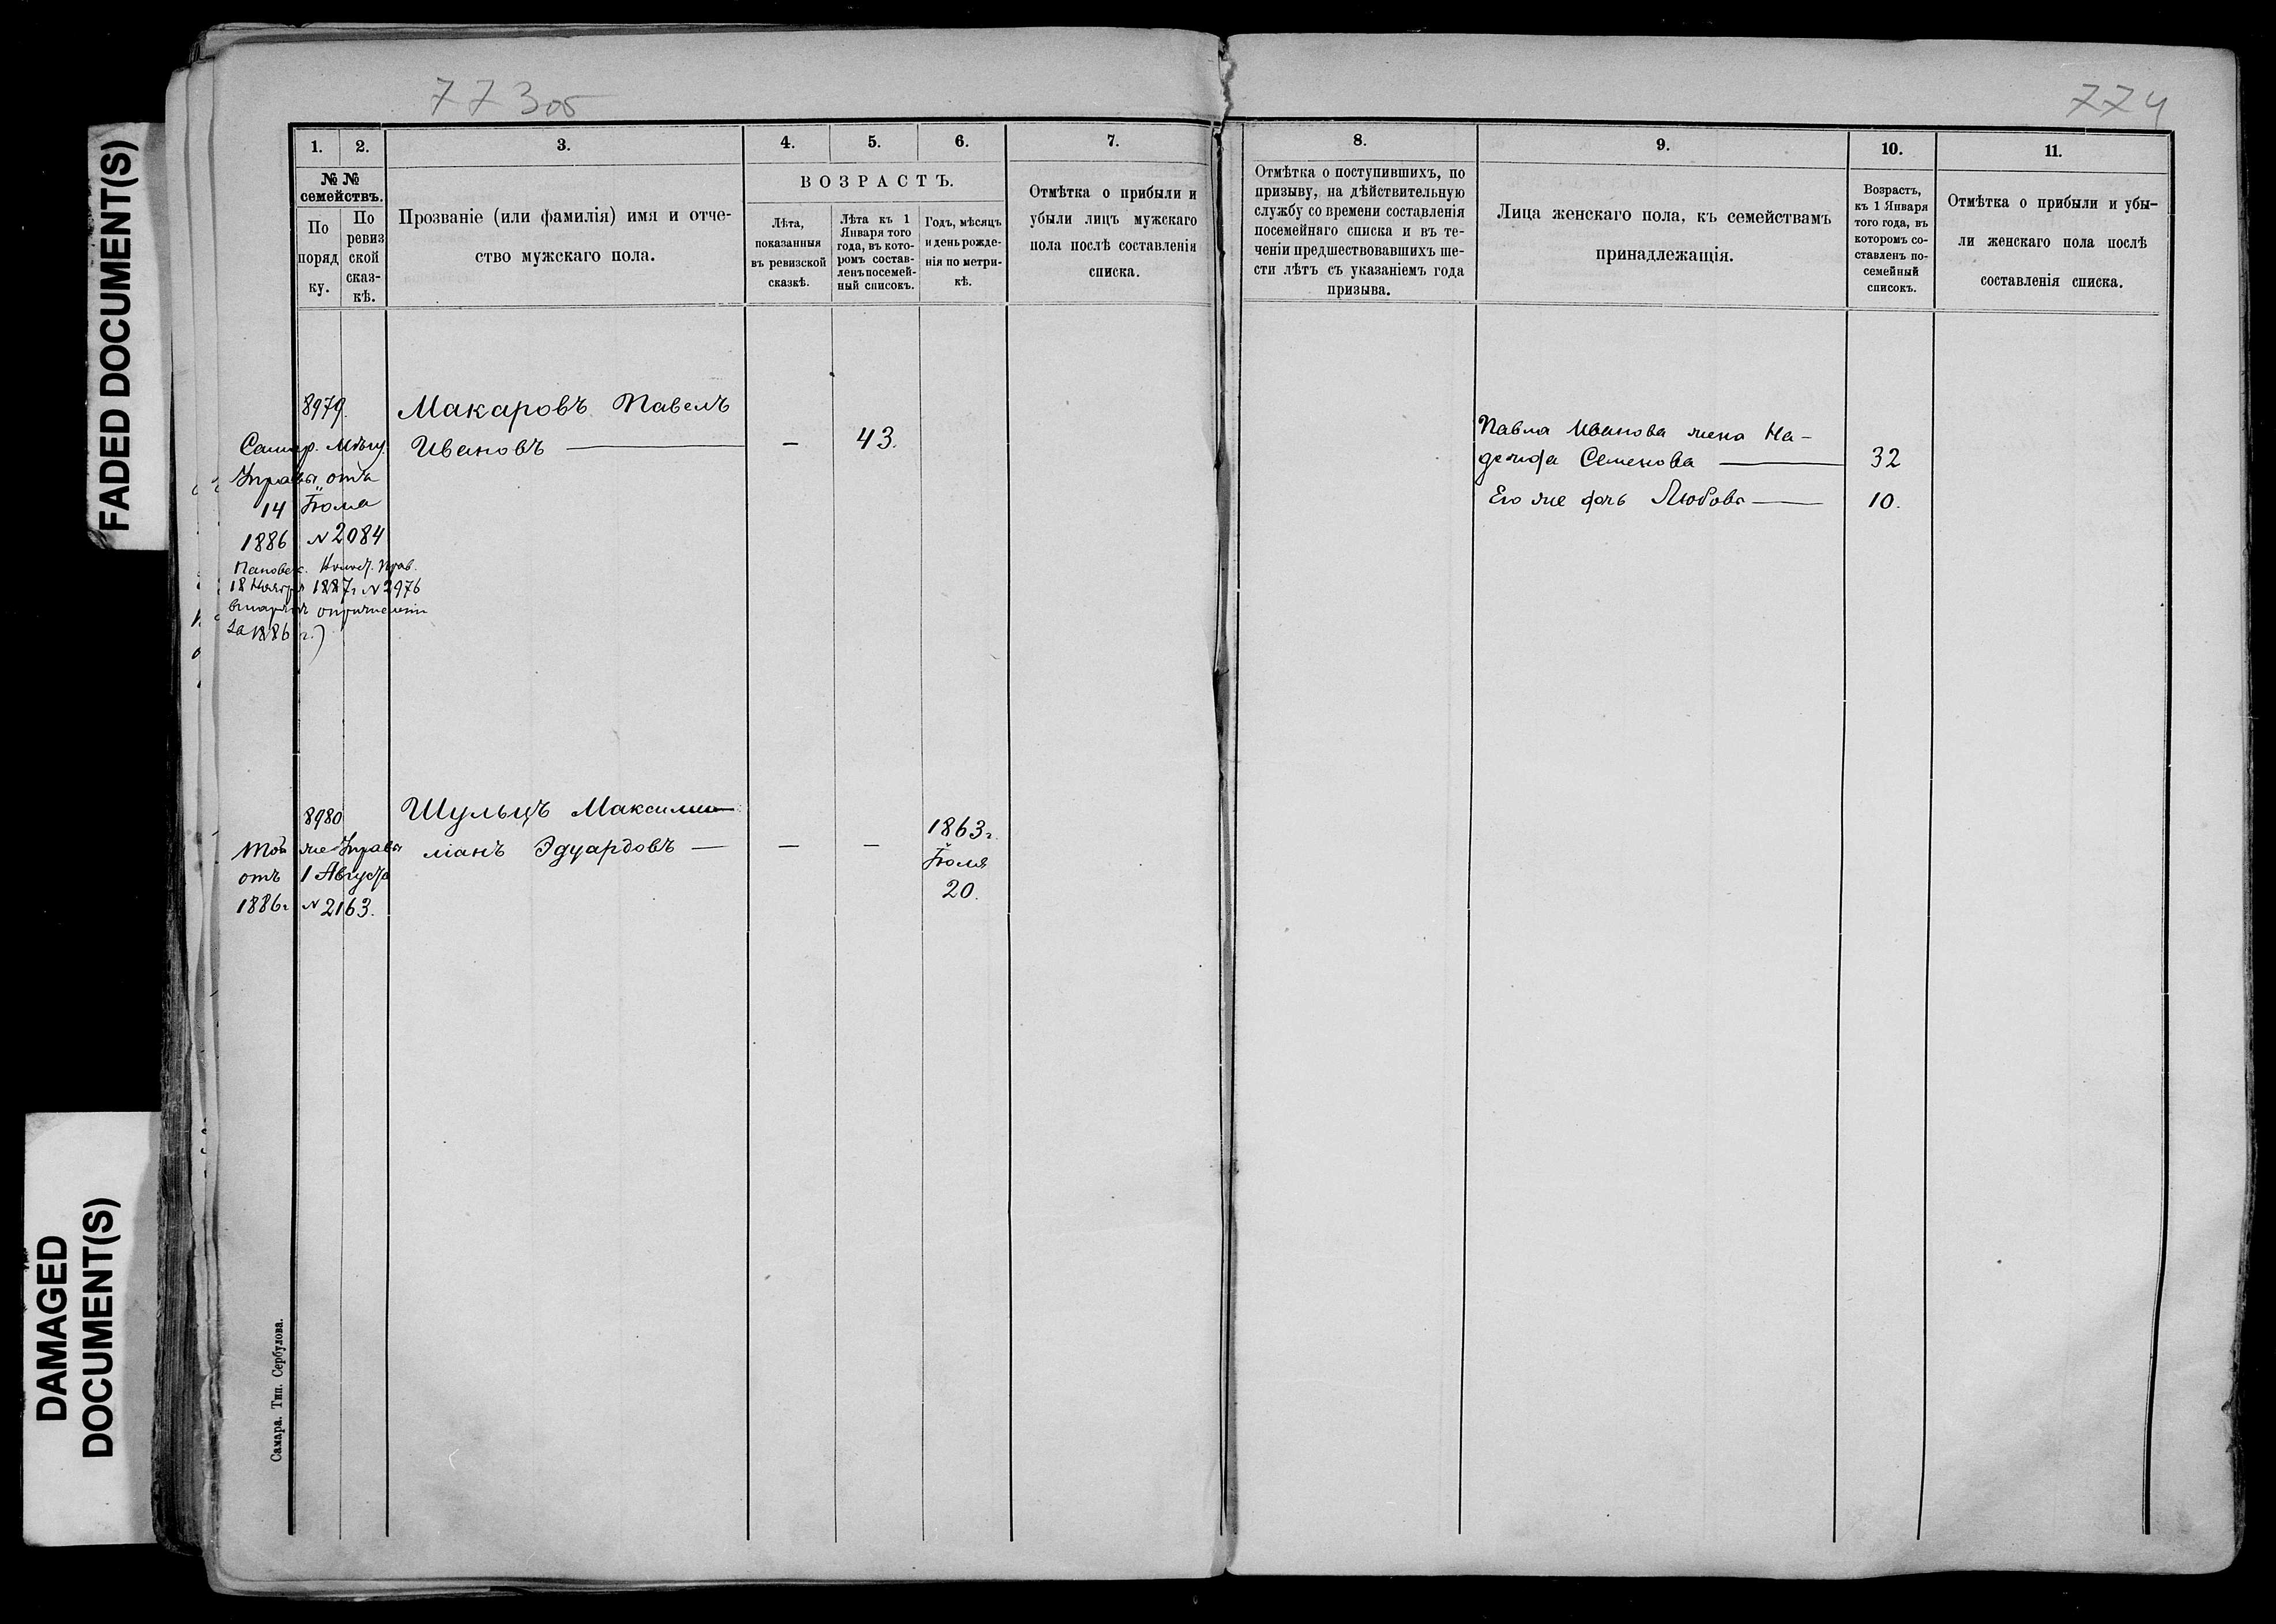 FADED DOCUMENT(S)
DAMAGED
DOCUMENT(S)
773об
774
1.
2.
3.
4.
5.
6.
7.
№ №
семействъ.
По
поряд
ку.
По
ревиз
ской
сказ-
кѣ.
Прозваніе (или фамилія) имя и отче-
ство мужскаго пола.
ВОЗРАСТЪ.
Лѣта,
показанныя
въ ревизской
сказкѣ.
Лѣта къ 1
Января того
года, въ кото-
ромъ состав-
ленъ посемей-
ный списокъ.
Годъ, мѣсяцъ
и день рожде-
нія по метри-
кѣ.
Отмѣтка о прибыли и
убыли лицъ мужскаго
пола послѣ составленія
списка.
8.
9.
10.
11.
Отмѣтка о поступившихъ, по
призыву, на дѣйствительную
службу со времени составленія
посемейнаго списка и въ те-
ченіи предшествовавшихъ ше-
сти лѣтъ съ указаніемъ года
призыва.
Лица женскаго пола, къ семействамъ
принадлежащія.
Возрастъ,
къ 1 Января
того года, въ
которомъ со-
ставленъ по-
семейный
списокъ.
Отмѣтка о прибыли и убы-
ли женскаго пола послѣ
составленія списка.
8979.
Самар. Мѣщ.
Управы отъ
14 Іюля
1886 № 2084
18 Ноября 1887г № 2976
за 1886 г.)
Макаровъ Павелъ
Ивановъ — — 43.
Павла Иванова жена На-
дежда Семенова — 32
Его же дочь Любовь — 10.
8980
Той же Управы
отъ 1 Августа
1886г № 2163.
Шульцъ Максими-
ліанъ Эдуардовъ — — —
1863г.
Іюля
20.
Самара. Тип. Сербулова.